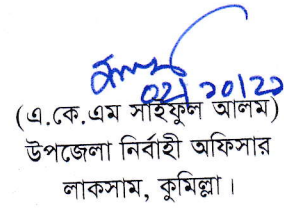 ০২/১০/২১
(এ.কে.এম সাইফুল আলম)
উপজেলা নির্বাহী অফিসার
লাকসাম, কুমিল্লা।